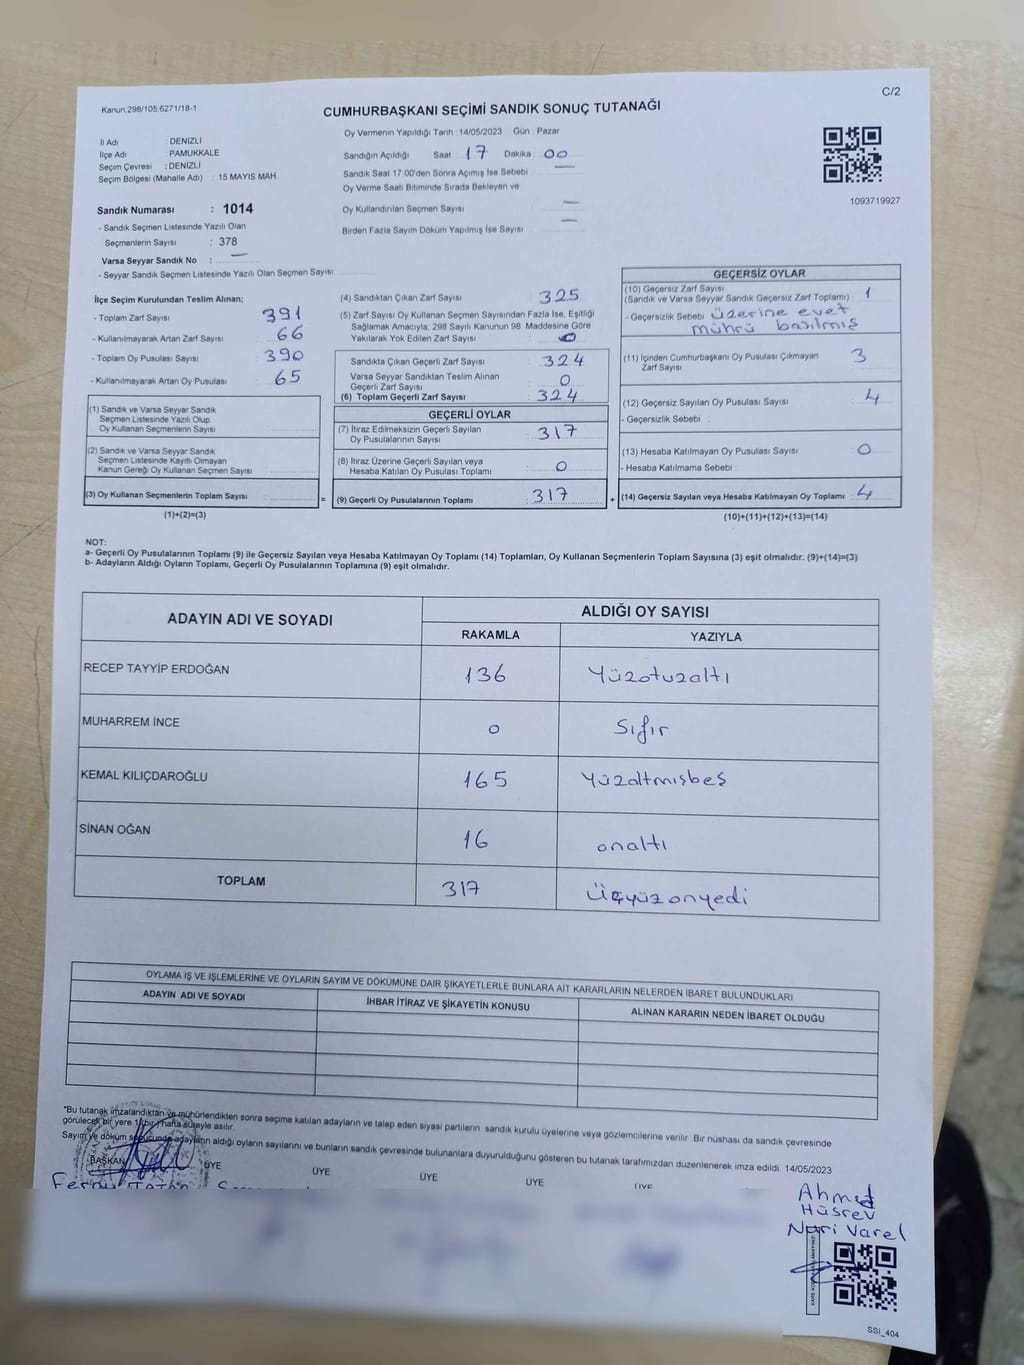 Kanun:298/105.6271/18-1
C/2
CUMHURBAŞKANI SEÇİMİ SANDIK SONUÇ TUTANAĞI
İl Adı : DENİZLİ
İlçe Adı : PAMUKKALE
Seçim Çevresi : DENİZLİ
Seçim Bölgesi (Mahalle Adı) : 15 MAYIS MAH.
Oy Vermenin Yapıldığı Tarih :14/05/2023 Gün : Pazar
Sandığın Açıldığı Saat 17 Dakika 00
Sandık Saat 17:00'den Sonra Açımış İse Sebebi
Oy Verme Saati Bitiminde Sırada Bekleyen ve
Oy Kullandırılan Seçmen Sayısı —
Birden Fazla Sayım Döküm Yapılmış İse Sayısı —
1093719927
Sandık Numarası : 1014
- Sandık Seçmen Listesinde Yazılı Olan
Seçmenlerin Sayısı : 378
Varsa Seyyar Sandık No : —
- Seyyar Sandık Seçmen Listesinde Yazılı Olan Seçmen Sayısı
İlçe Seçim Kurulundan Teslim Alınan;
- Toplam Zarf Sayısı 391
- Kullanılmayarak Artan Zarf Sayısı 66
- Toplam Oy Pusulası Sayısı 390
- Kullanılmayarak Artan Oy Pusulası 65
(1) Sandık ve Varsa Seyyar Sandık
Seçmen Listesinde Yazılı Olup
Oy Kullanan Seçmenlerin Sayısı
(2) Sandık ve Varsa Seyyar Sandık
Seçmen Listesinde Kayıtlı Olmayan
Kanun Gereği Oy Kullanan Seçmen Sayısı
(3) Oy Kullanan Seçmenlerin Toplam Sayısı =
(1)+(2)=(3)
(4) Sandıktan Çıkan Zarf Sayısı 325
(5) Zarf Sayısı Oy Kullanan Seçmen Sayısından Fazla İse, Eşitliği
Sağlamak Amacıyla; 298 Sayılı Kanunun 98. Maddesine Göre
Yakılarak Yok Edilen Zarf Sayısı
Sandıkta Çıkan Geçerli Zarf Sayısı 324
Varsa Seyyar Sandıktan Teslim Alınan
Geçerli Zarf Sayısı 0
(6) Toplam Geçerli Zarf Sayısı : 324
GEÇERLİ OYLAR
(7) İtiraz Edilmeksizin Geçerli Sayılan
Oy Pusulalarının Sayısı : 317
(8) İtiraz Üzerine Geçerli Sayılan veya
Hesaba Katılan Oy Pusulası Toplamı : 0
(9) Geçerli Oy Pusulalarının Toplamı : 317 +
GEÇERSİZ OYLAR
(10) Geçersiz Zarf Sayısı
(Sandık ve Varsa Seyyar Sandık Geçersiz Zarf Toplamı) 1
- Geçersizlik Sebebi üzerine evet
mührü basılmış
(11) İçinden Cumhurbaşkanı Oy Pusulası Çıkmayan
Zarf Sayısı 3
(12) Geçersiz Sayılan Oy Pusulası Sayısı 4
- Geçersizlik Sebebi :
(13) Hesaba Katılmayan Oy Pusulası Sayısı 0
- Hesaba Katılmama Sebebi :
(14) Geçersiz Sayılan veya Hesaba Katılmayan Oy Toplamı 4
(10)+(11)+(12)+(13)=(14)
NOT:
a- Geçerli Oy Pusulalarının Toplamı (9) ile Geçersiz Sayılan veya Hesaba Katılmayan Oy Toplamı (14) Toplamları, Oy Kullanan Seçmenlerin Toplam Sayısına (3) eşit olmalıdır. (9)+(14)=(3)
b- Adayların Aldığı Oyların Toplamı, Geçerli Oy Pusulalarının Toplamına (9) eşit olmalıdır.
ADAYIN ADI VE SOYADI ALDIĞI OY SAYISI
RAKAMLA YAZIYLA
RECEP TAYYİP ERDOĞAN 136 Yüzotuzaltı
MUHARREM İNCE 0 Sıfır
KEMAL KILIÇDAROĞLU 165 Yüzaltmışbeş
SİNAN OĞAN 16 onaltı
TOPLAM 317 Üçyüzonyedi
OYLAMA İŞ VE İŞLEMLERİNE VE OYLARIN SAYIM VE DÖKÜMÜNE DAİR ŞİKAYETLERLE BUNLARA AİT KARARLARIN NELERDEN İBARET BULUNDUKLARI
ADAYIN ADI VE SOYADI İHBAR İTİRAZ VE ŞİKAYETİN KONUSU ALINAN KARARIN NEDEN İBARET OLDUĞU
"Bu tutanak imzalandıktan ve mühürlendikten sonra seçime katılan adayların ve talep eden siyasi partilerin sandık kurulu üyelerine veya gözlemcilerine verilir. Bir nüshası da sandık çevresinde
görülecek bir yere 1(bir) hafta süreyle asılır.
Sayım ve döküm sonucunda adayların aldığı oyların sayılarını ve bunların sandık çevresinde bulunanlara duyurulduğunu gösteren bu tutanak tarafımızdan düzenlenerek imza edildi. 14/05/2023
BAŞKAN ÜYE ÜYE ÜYE ÜYE ÜYE
Ahmed
Hüsrev
Nuri Varel
SSI_404